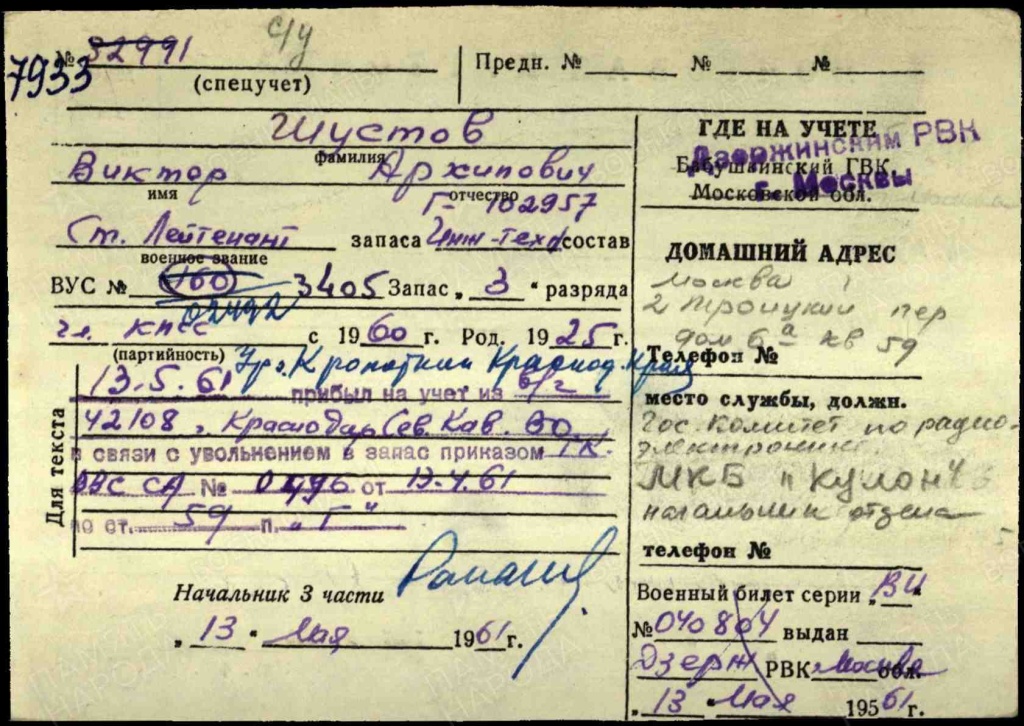 с/у
№ 32991
7933
(спецучет)
Предн. № № №
Шустов
фамилия
Виктор Архипович
имя отчество
Г-102957
Ст. Лейтенант запаса Инж-техн состав
военное звание
ВУС № 160 3405 Запас „ 3 “ разряда
02492
чл. КПСС с 1960 г. Род. 1925 г.
(партийность) Ур. г. Кропоткин Краснод. Края
Для текста
13.5.61 прибыл на учет из в/ч
42108, Краснодар Сев. Кав. ВО
в связи с увольнением в запас приказом ГК.
ВВС СА № 0496 от 13.4.61
по ст. 59 п. „Г“
Начальник 3 части
„ 13 “ Мая 1961 г.
ГДЕ НА УЧЕТЕ
Дзержинским РВК
Бабушкинский ГВК
г. Москвы
Московской обл.
ДОМАШНИЙ АДРЕС
Москва
2 Троицкий пер
дом 6а кв 59
Телефон №
место службы, должн.
Гос. Комитет по радио-
электронике
МКБ „Кулон“
начальник отдела
телефон №
Военный билет серии „ВИ“
№ 040804 выдан
Дзерж РВК Москва обл.
„ 13 “ Мая 195 61 г.